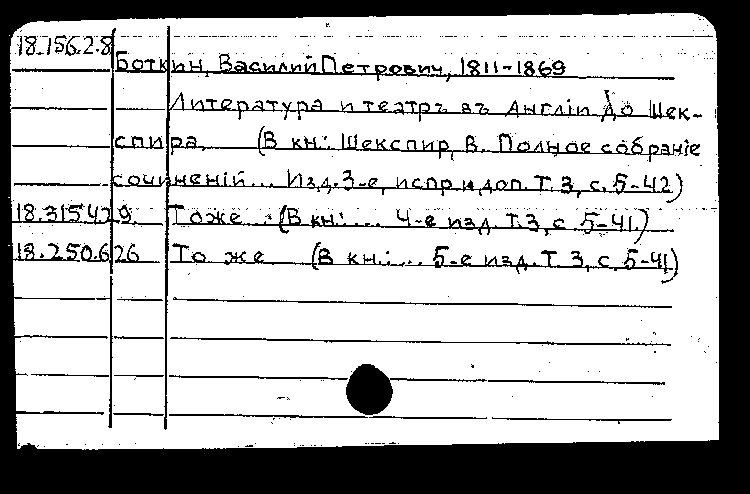 18.156.2.8
Боткин, Василий Петрович, 1811-1869
Литература и театръ въ Англіи до Шек-
спира. (В кн.: Шекспир, В. Полное собраніе
сочиненій... Изд. 3-е, испр. и доп. Т. 3, с. 5-42)
18.315.429. То же. (В кн.: ... 4-е изд. Т. 3, с. 5-41.)
18.250.626 То же (В кн.: ... 5-е изд. Т. 3, с. 5-41)